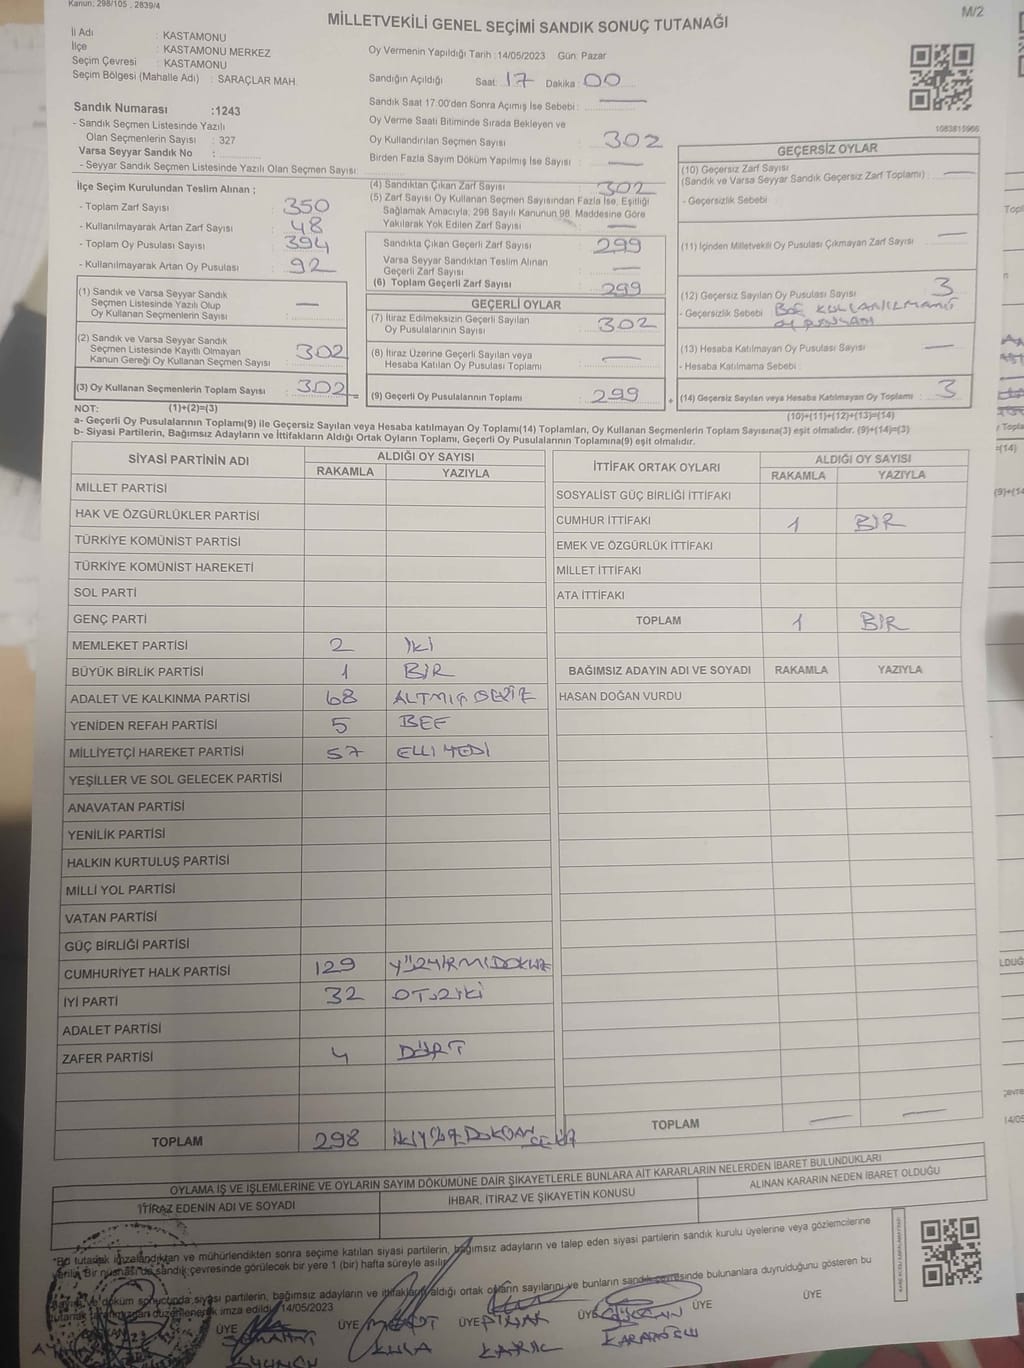 Kanun: 298/105 , 2839/4
MİLLETVEKİLİ GENEL SEÇİMİ SANDIK SONUÇ TUTANAĞI
M/2
İl Adı : KASTAMONU
İlçe : KASTAMONU MERKEZ
Seçim Çevresi : KASTAMONU
Seçim Bölgesi (Mahalle Adı) : SARAÇLAR MAH.
Oy Vermenin Yapıldığı Tarih :14/05/2023 Gün: Pazar
Sandığın Açıldığı Saat: 17 Dakika: 00
Sandık Saat 17:00'den Sonra Açımış İse Sebebi :
Sandık Numarası :1243
- Sandık Seçmen Listesinde Yazılı
Olan Seçmenlerin Sayısı : 327
Varsa Seyyar Sandık No :
- Seyyar Sandık Seçmen Listesinde Yazılı Olan Seçmen Sayısı:
Oy Verme Saati Bitiminde Sırada Bekleyen ve
Oy Kullandırılan Seçmen Sayısı : 302
Birden Fazla Sayım Döküm Yapılmış İse Sayısı :
1083815966
İlçe Seçim Kurulundan Teslim Alınan ;
- Toplam Zarf Sayısı : 350
- Kullanılmayarak Artan Zarf Sayısı : 48
- Toplam Oy Pusulası Sayısı : 394
- Kullanılmayarak Artan Oy Pusulası : 92
(1) Sandık ve Varsa Seyyar Sandık
Seçmen Listesinde Yazılı Olup
Oy Kullanan Seçmenlerin Sayısı :
(2) Sandık ve Varsa Seyyar Sandık
Seçmen Listesinde Kayıtlı Olmayan
Kanun Gereği Oy Kullanan Seçmen Sayısı : 302
(3) Oy Kullanan Seçmenlerin Toplam Sayısı : 302
(4) Sandıktan Çıkan Zarf Sayısı : 302
(5) Zarf Sayısı Oy Kullanan Seçmen Sayısından Fazla İse, Eşitliği
Sağlamak Amacıyla, 298 Sayılı Kanunun 98. Maddesine Göre
Yakılarak Yok Edilen Zarf Sayısı :
Sandıkta Çıkan Geçerli Zarf Sayısı : 299
Varsa Seyyar Sandıktan Teslim Alınan
Geçerli Zarf Sayısı :
(6) Toplam Geçerli Zarf Sayısı : 299
GEÇERLİ OYLAR
(7) İtiraz Edilmeksizin Geçerli Sayılan
Oy Pusulalarının Sayısı : 302
(8) İtiraz Üzerine Geçerli Sayılan veya
Hesaba Katılan Oy Pusulası Toplamı :
(9) Geçerli Oy Pusulalarının Toplamı : 299
GEÇERSİZ OYLAR
(10) Geçersiz Zarf Sayısı
(Sandık ve Varsa Seyyar Sandık Geçersiz Zarf Toplamı) :
- Geçersizlik Sebebi :
(11) İçinden Milletvekili Oy Pusulası Çıkmayan Zarf Sayısı :
(12) Geçersiz Sayılan Oy Pusulası Sayısı : 3
- Geçersizlik Sebebi : BOŞ KULLANILMAMIŞ
OY PUSULASI
(13) Hesaba Katılmayan Oy Pusulası Sayısı :
- Hesaba Katılmama Sebebi :
(14) Geçersiz Sayılan veya Hesaba Katılmayan Oy Toplamı : 3
NOT: (1)+(2)=(3)
(10)+(11)+(12)+(13)=(14)
a- Geçerli Oy Pusulalarının Toplamı(9) ile Geçersiz Sayılan veya Hesaba katılmayan Oy Toplamı(14) Toplamları, Oy Kullanan Seçmenlerin Toplam Sayısına(3) eşit olmalıdır. (9)+(14)=(3)
b- Siyasi Partilerin, Bağımsız Adayların ve İttifakların Aldığı Ortak Oyların Toplamı, Geçerli Oy Pusulalarının Toplamına(9) eşit olmalıdır.
SİYASİ PARTİNİN ADI
ALDIĞI OY SAYISI
RAKAMLA YAZIYLA
MİLLET PARTİSİ
HAK VE ÖZGÜRLÜKLER PARTİSİ
TÜRKİYE KOMÜNİST PARTİSİ
TÜRKİYE KOMÜNİST HAREKETİ
SOL PARTİ
GENÇ PARTİ
MEMLEKET PARTİSİ 2 İki
BÜYÜK BİRLİK PARTİSİ 1 BİR
ADALET VE KALKINMA PARTİSİ 68 ALTMIŞ SEKİZ
YENİDEN REFAH PARTİSİ 5 BEŞ
MİLLİYETÇİ HAREKET PARTİSİ 57 ELLİ YEDİ
YEŞİLLER VE SOL GELECEK PARTİSİ
ANAVATAN PARTİSİ
YENİLİK PARTİSİ
HALKIN KURTULUŞ PARTİSİ
MİLLİ YOL PARTİSİ
VATAN PARTİSİ
GÜÇ BİRLİĞİ PARTİSİ
CUMHURİYET HALK PARTİSİ 129 YÜZYİRMİDOKUZ
İYİ PARTİ 32 OTUZİKİ
ADALET PARTİSİ
ZAFER PARTİSİ 4 DÖRT
TOPLAM 298 İKİYÜZDOKSANSEKİZ
İTTİFAK ORTAK OYLARI
ALDIĞI OY SAYISI
RAKAMLA YAZIYLA
SOSYALİST GÜÇ BİRLİĞİ İTTİFAKI
CUMHUR İTTİFAKI 1 BİR
EMEK VE ÖZGÜRLÜK İTTİFAKI
MİLLET İTTİFAKI
ATA İTTİFAKI
TOPLAM 1 BİR
BAĞIMSIZ ADAYIN ADI VE SOYADI RAKAMLA YAZIYLA
HASAN DOĞAN VURDU
TOPLAM
OYLAMA İŞ VE İŞLEMLERİNE VE OYLARIN SAYIM DÖKÜMÜNE DAİR ŞİKAYETLERLE BUNLARA AİT KARARLARIN NELERDEN İBARET BULUNDUKLARI
İTİRAZ EDENİN ADI VE SOYADI
İHBAR, İTİRAZ VE ŞİKAYETİN KONUSU
ALINAN KARARIN NEDEN İBARET OLDUĞU
*Bu tutanak imzalandıktan ve mühürlendikten sonra seçime katılan siyasi partilerin, bağımsız adayların ve talep eden siyasi partilerin sandık kurulu üyelerine veya gözlemcilerine
verilir. Bir nüshası da sandık çevresinde görülecek bir yere 1 (bir) hafta süreyle asılır.
Sayım ve döküm sonucunda siyasi partilerin, bağımsız adayların ve ittifakların aldığı ortak oyların sayılarını ve bunların sandık çevresinde bulunanlara duyrulduğunu gösteren bu
tutanak tarafımızdan düzenlenerek imza edildi. 14/05/2023
BAŞKAN ÜYE ÜYE ÜYE ÜYE ÜYE ÜYE